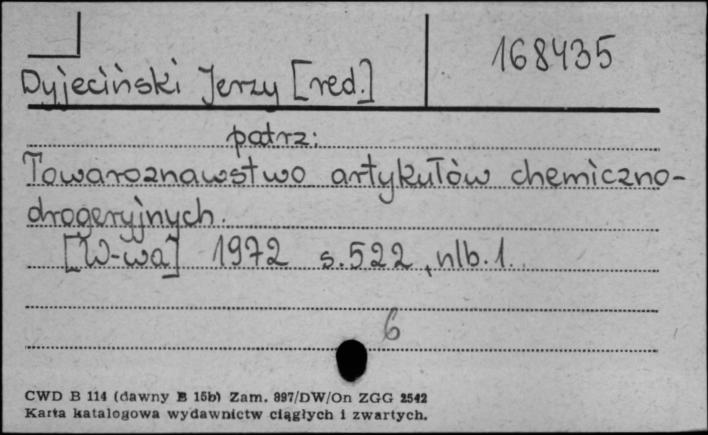 168435
Dyjeciński Jerzy [red.]
patrz:
Towaroznawstwo artykułów chemiczno-
drogeryjnych.
[W-wa] 1972 s.522, nlb.1.
6
CWD B 114 (dawny B 15b) Zam. 897/DW/On ZGG 2542
Karta katalogowa wydawnictw ciągłych i zwartych.